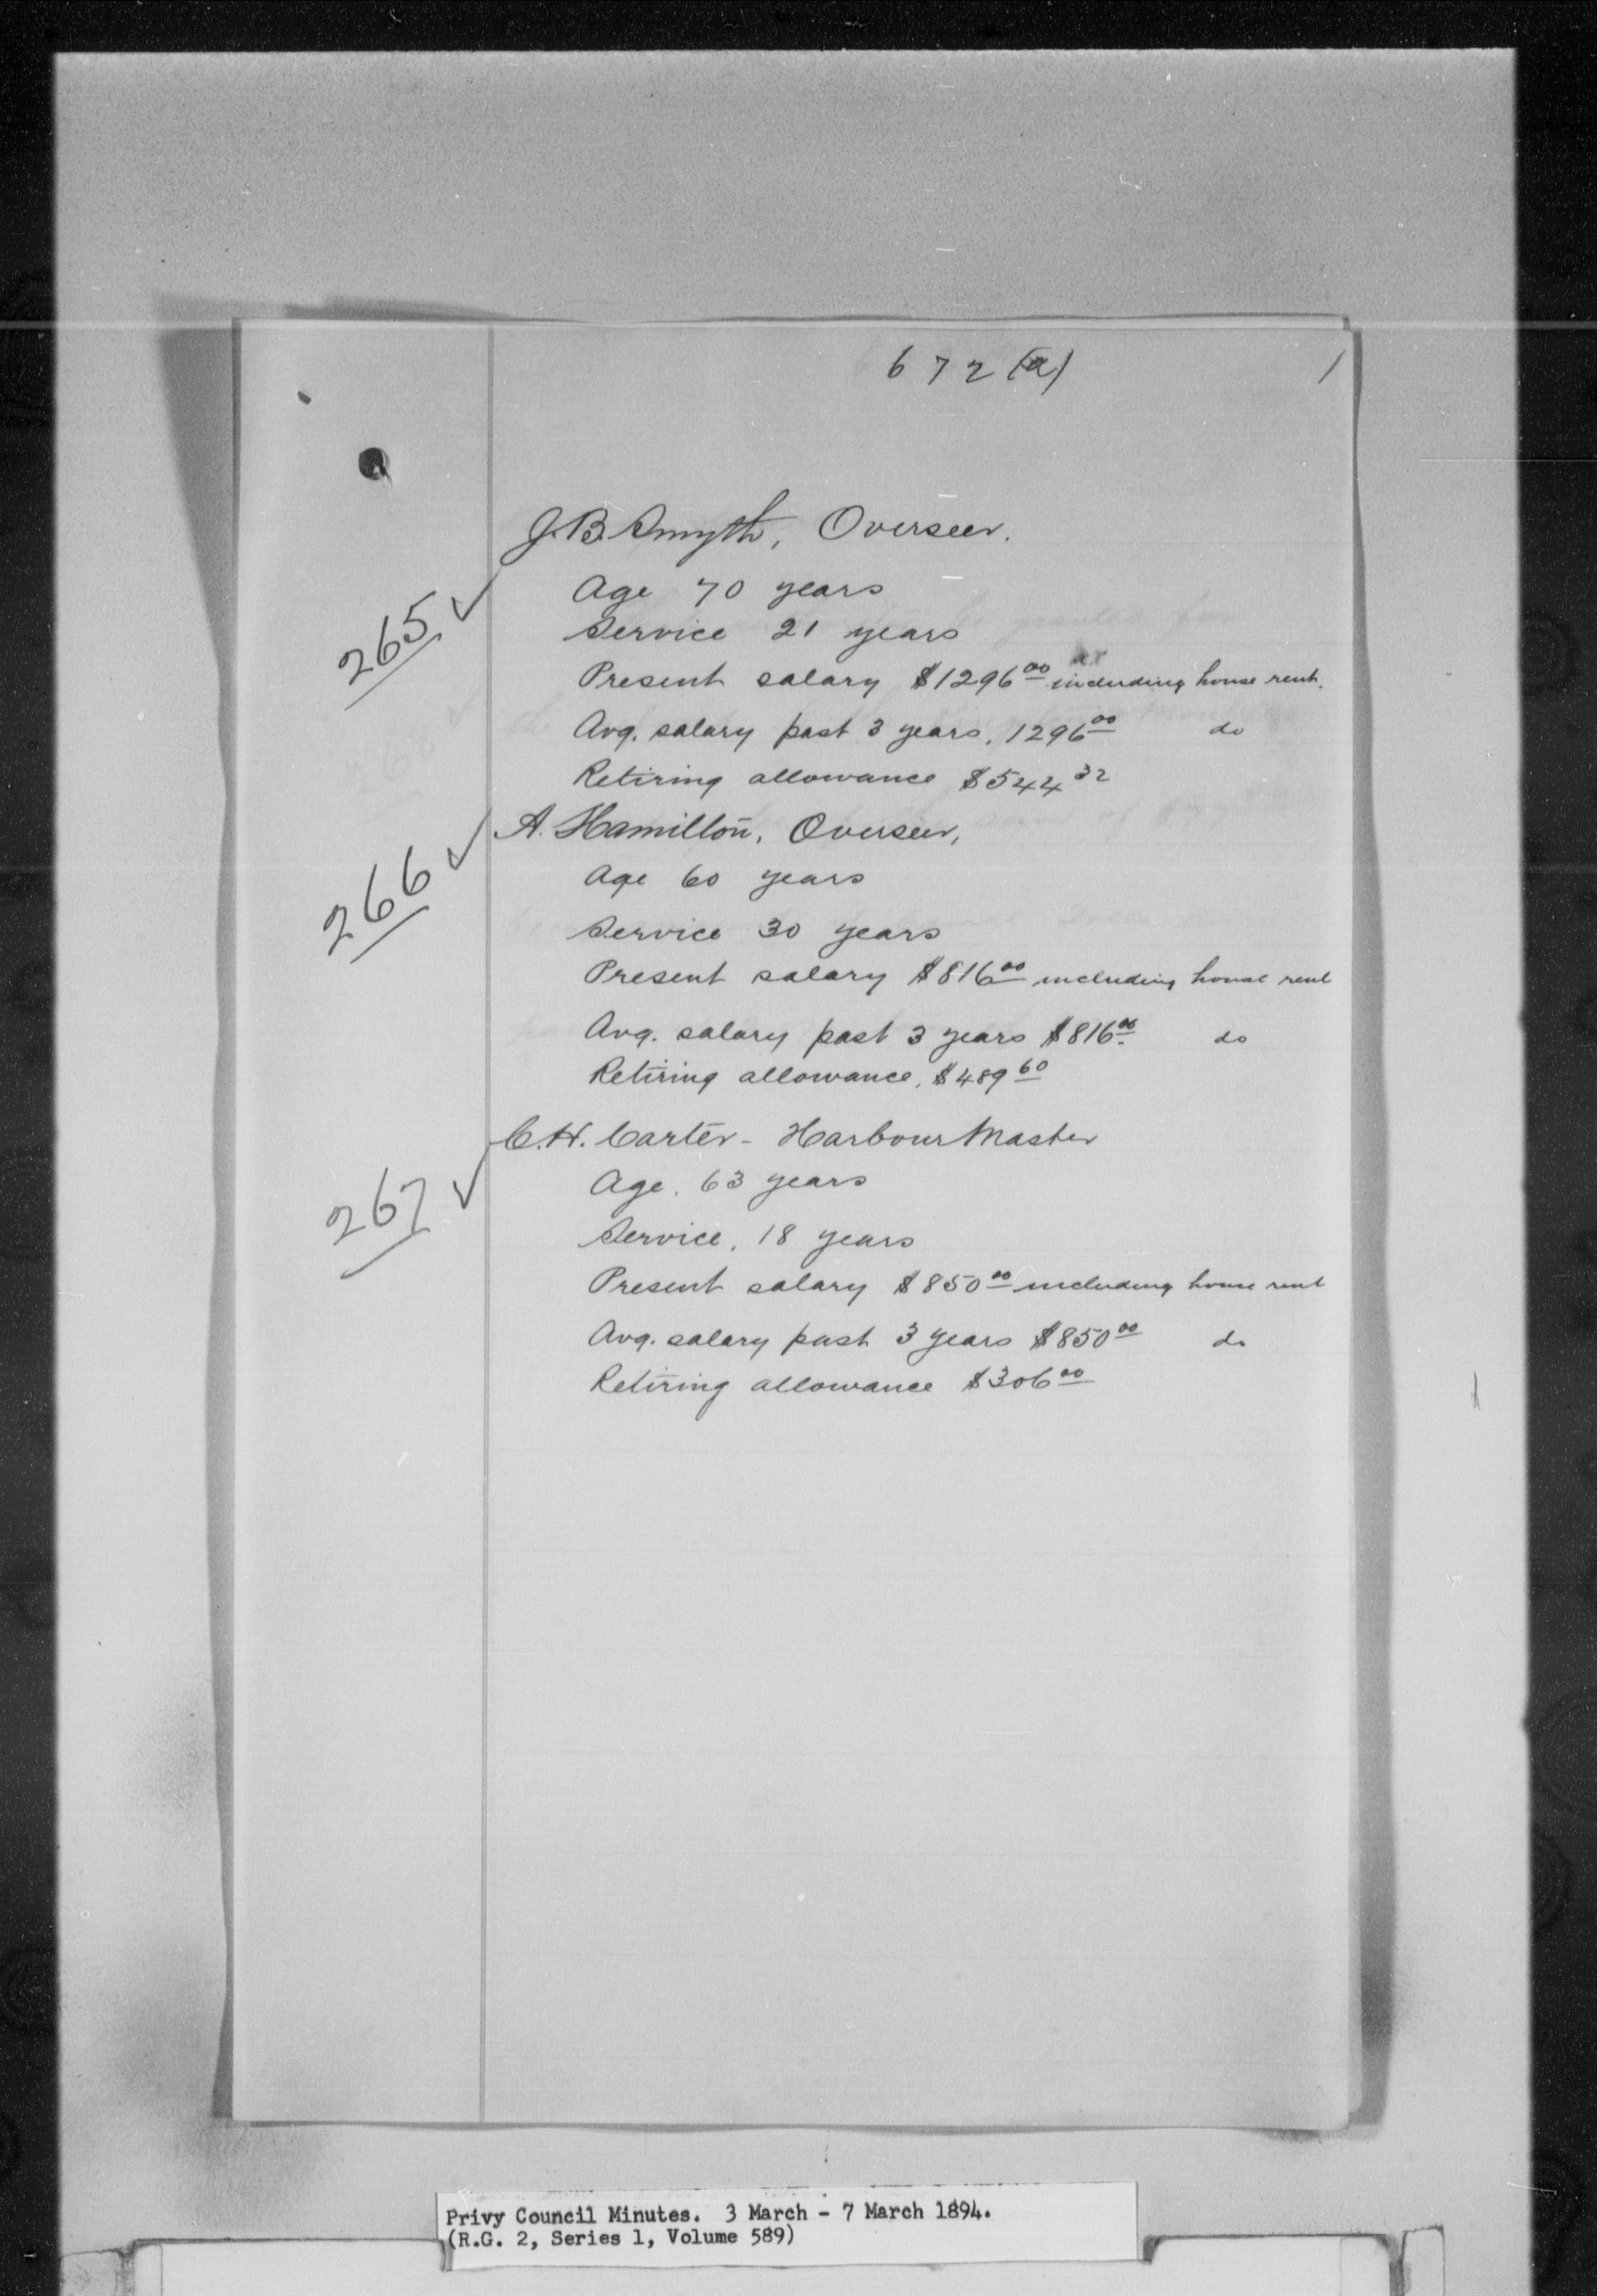 672(a)
1
J.B. Smyth, Overseer.
265 ✓
Age 70 years
Service 21 years
Present salary $1296.00 including house rent.
Avg. salary past 3 years, 1296.00 do
Retiring allowance $544.32
266 ✓
A. Hamilton, Overseer,
Age 60 years
Service 30 years
Present salary $816.00 including house rent
Avg. salary past 3 years $816.00 do
Retiring allowance, $489.60
267 ✓
C.H. Carter - Harbour Master
Age, 63 years
Service, 18 years
Present salary $850.00 including house rent
Avg. salary past 3 years $850.00 do
Retiring allowance $306.00
Privy Council Minutes. 3 March - 7 March 1894.
(R.G. 2, Series 1, Volume 589)